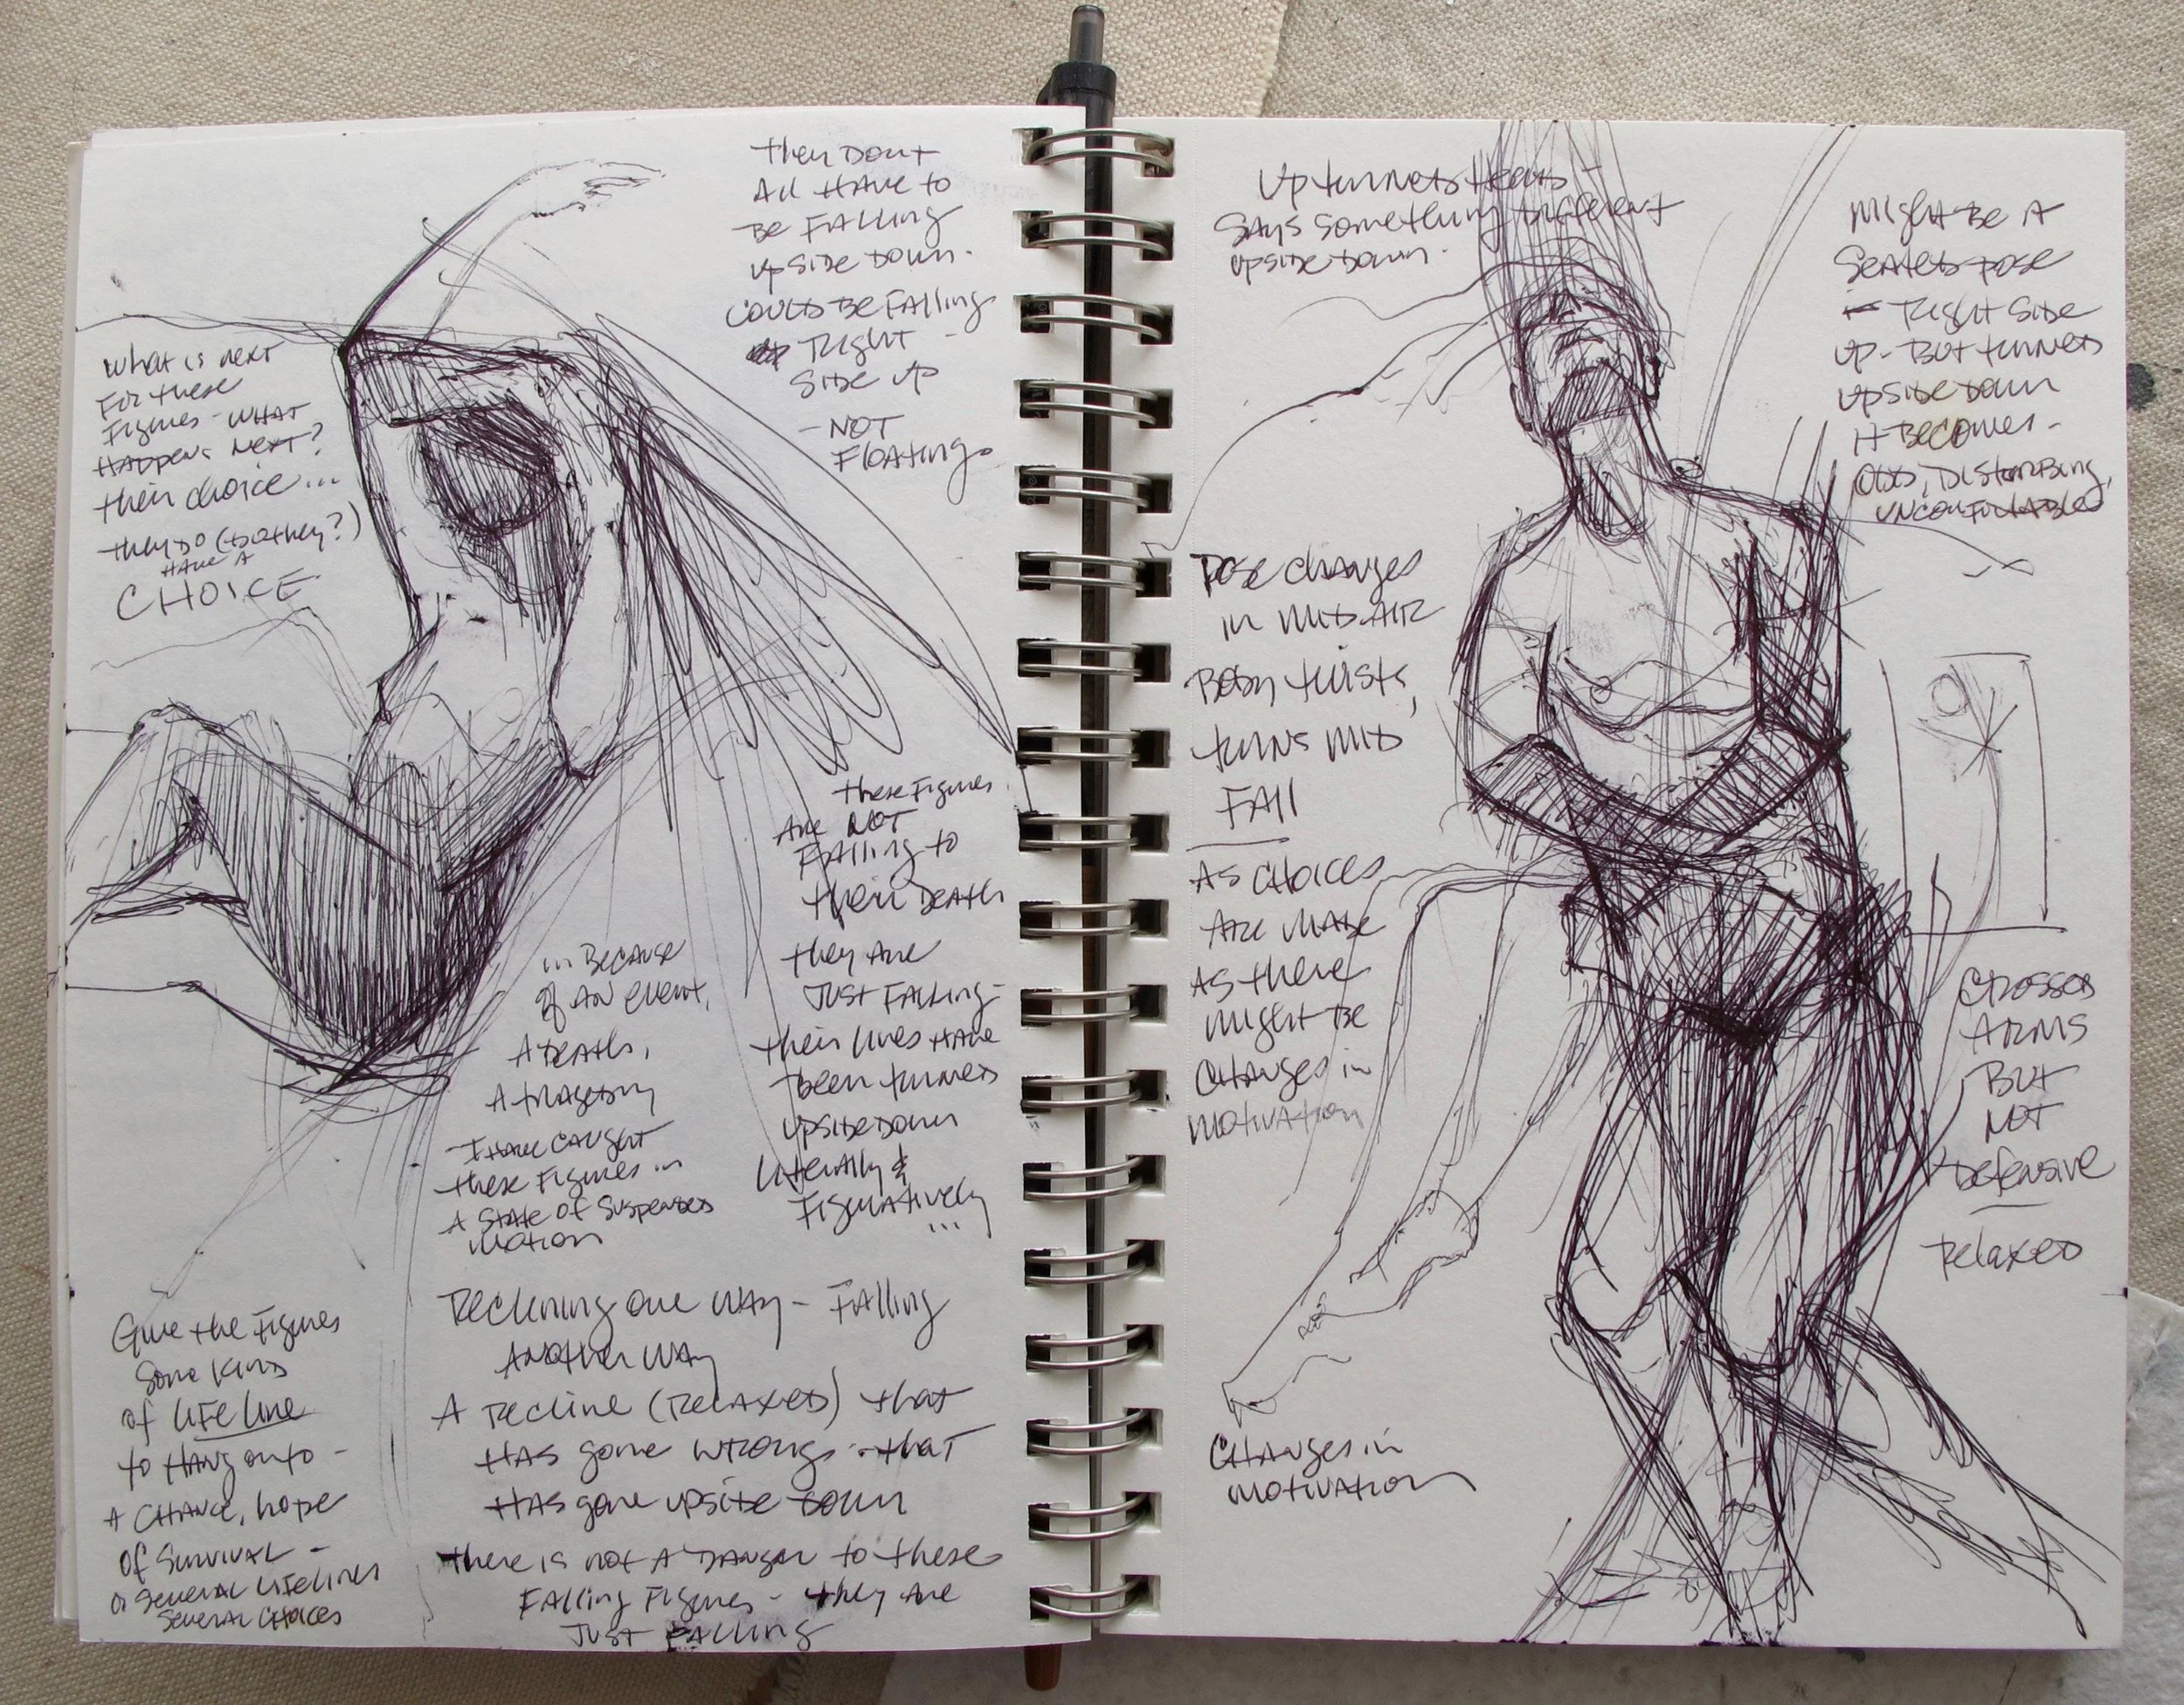 They Don't
All Have to
Be Falling
upside down.
Could Be Falling
Right -
Side up
- NOT
Floating
What is next
For these
Figures - WHAT
Happens Next?
their choice...
they do (do they?)
HAVE A
CHOICE
these Figures
Are NOT
Falling to
their Death
they Are
JUST FALLING -
their lives Have
been turned
upside down
Literally &
Figuratively
...
in Because
of AN event,
A Death,
A tragedy
- I Have caught
these Figures in
A State of Suspended
Motion
Reclining one way - Falling
Another way
A Recline (Relaxed) that
Has gone wrong - that
Has gone upside down
There is not A Danger to these
Falling Figures - they Are
JUST FALLING
Give the Figures
Some Kind
of LIFELINE
to Hang onto -
A CHANCE, hope
Of Survival -
or Several Lifelines
Several Choices
Upturned Head -
Says something Different
upside down.
Might Be A
Seated pose
- Right Side
up - But turned
upside down
it Becomes -
ODD, Disturbing,
uncomfortable
Pose changes
in MID-AIR
Body twists,
turns MID
FALL
As Choices
Are Made
As there
Might Be
Changes in
Motivation
Crossed
ARMS
But
NOT
Defensive
Relaxed
Changes in
Motivation